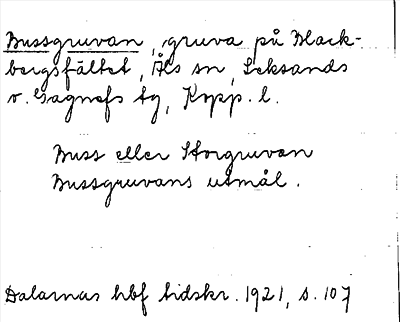 Bussgruvan, gruva på Bleck-
bergsfältet, Åls sn, Leksands
o. Gagnefs tg, Kopp. l.
Buss eller Storgruvan
Bussgruvans utmål.
Dalarnas hbf tidskr. 1921, s. 107